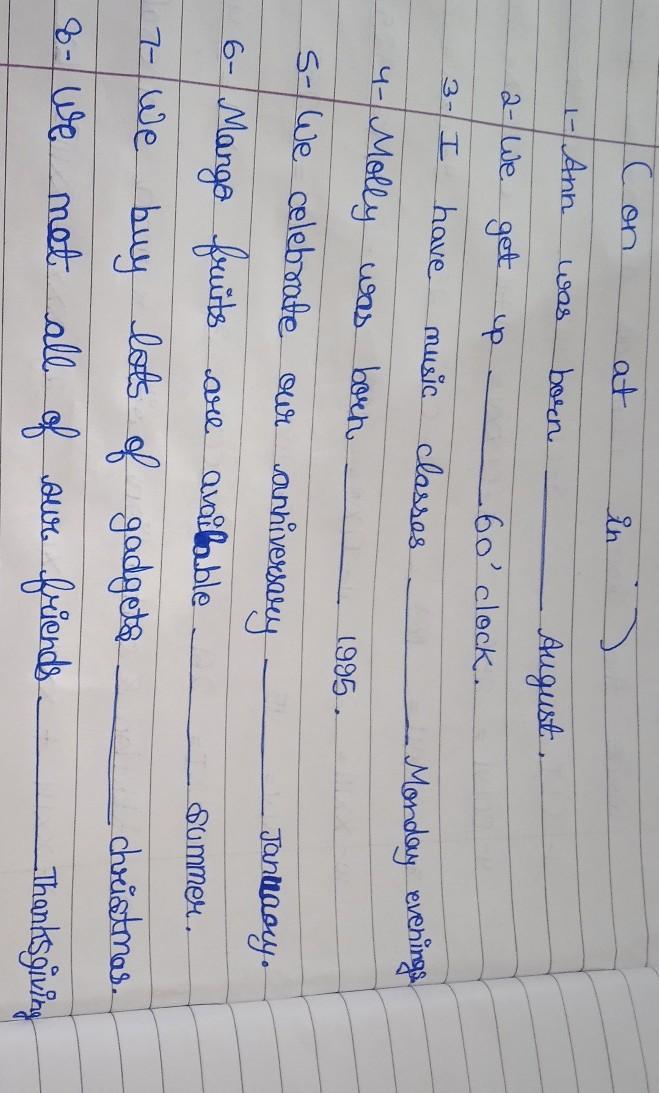 (on at in)
1- Ann was born ______ August.
2- We get up ______ 60'clock.
3- I have music classes ______ Monday evenings
4- Molly was born ______ 1995.
5- We celebrate our anniversary ______ January.
6- Mango fruits are available ______ summer.
7- We buy lots of gadgets ______ christmas.
8- We met all of our friends ______ Thanksgiving